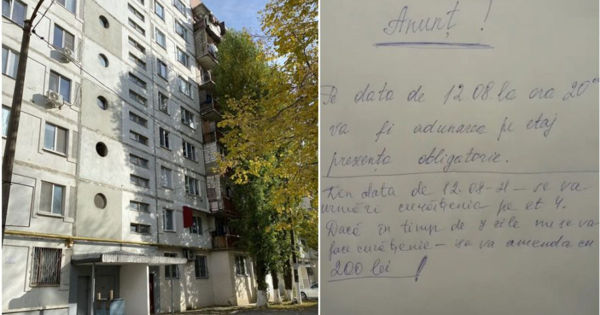 Anunț !
Pe data de 12.08 la ora 20⁰⁰
va fi adunarea pe etaj
prezența obligatorie.
data de 12.08 - se va
urmări curățenia pe et 4.
Dacă în timp de zile nu se va
face curățenie - se va amenda cu
200 lei !